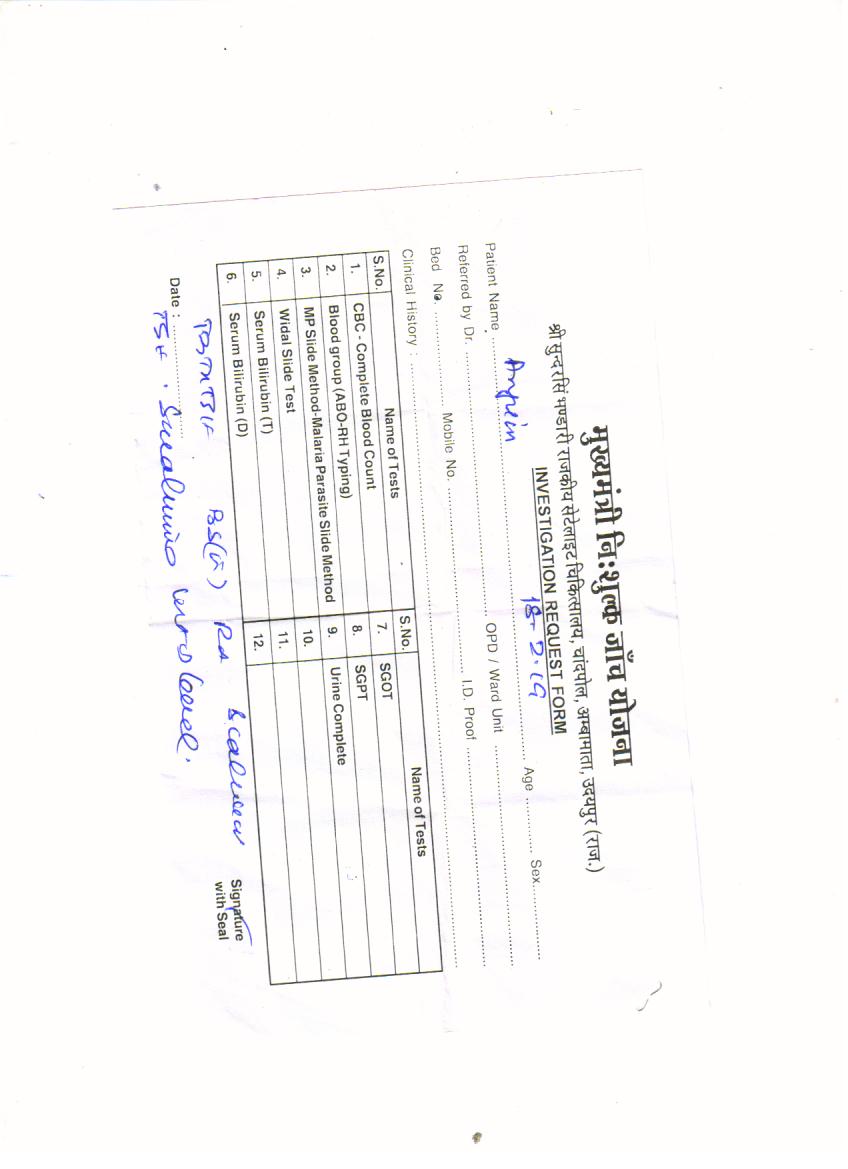 मुख्यमंत्री नि:शुल्क जाँच योजना
श्री सुन्दरसिं भण्डारी राजकीय सेटेलाइट चिकित्सालय, चांदपोल, अम्बामाता, उदयपुर (राज.)
INVESTIGATION REQUEST FORM
18-2-19
Patient Name Age Sex
Referred by Dr. OPD / Ward Unit
Bed No. Mobile No. I.D. Proof
Clinical History :
S.No. Name of Tests S.No. Name of Tests
1. CBC - Complete Blood Count 7. SGOT
2. Blood group (ABO-RH Typing) 8. SGPT
3. MP Slide Method-Malaria Parasite Slide Method 9. Urine Complete
4. Widal Slide Test 10.
5. Serum Bilirubin (T) 11.
6. Serum Bilirubin (D) 12.
Signature
with Seal
Date :
TSH